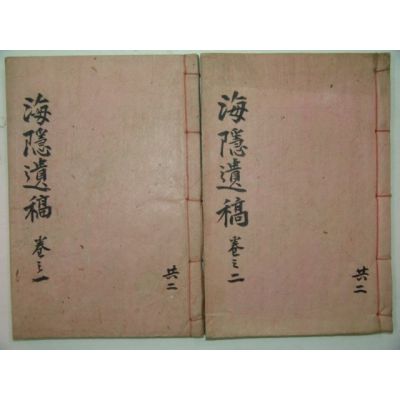 海隱遺稿 卷之一
共二
海隱遺稿 卷之二
共二